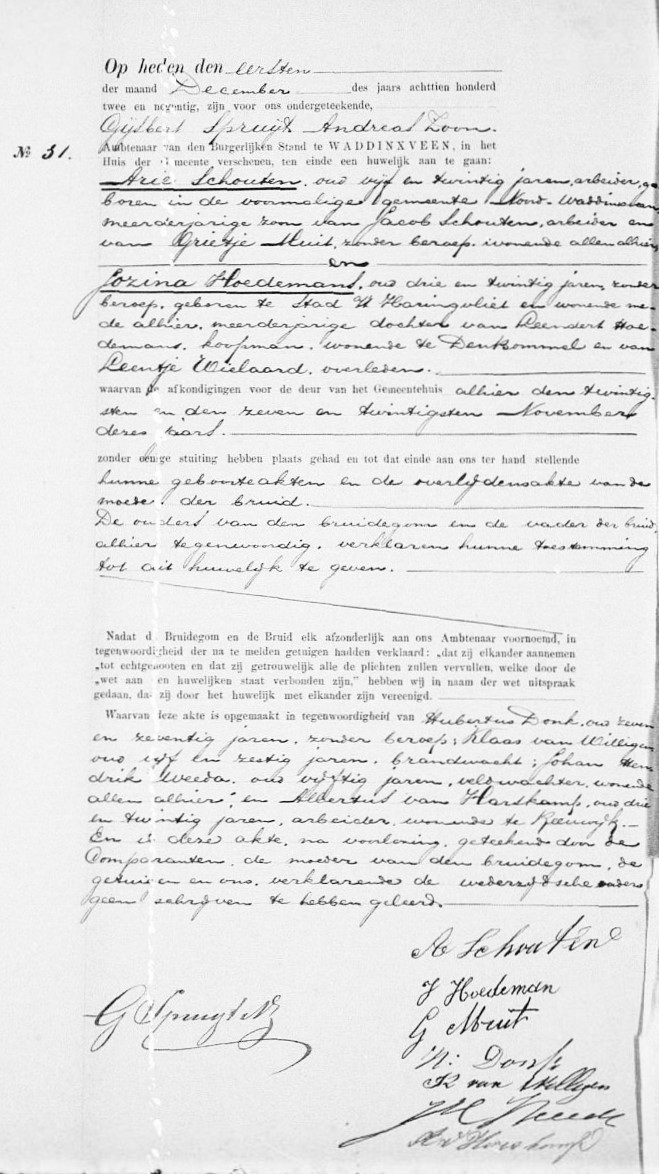 Op heden den eersten
der maand December des jaars achttien honderd
twee en negentig, zijn voor ons ondergeteekende,
Gijsbert Spruijt Andreas Zoon.
Ambtenaar van den Burgerlijken Stand te WADDINXVEEN, in het
№ 31.
Huis der Gemeente verschenen, ten einde een huwelijk aan te gaan:
Arie Schouten, oud vijf en twintig jaren, arbeider, ge-
boren in de voormalige gemeente Noord-Waddinxveen
meerderjarige zoon van Jacob Schouten, arbeider en
van Grietje Muit, zonder beroep, wonende allen alhier
en
Jozina Hoedemans, oud drie en twintig jaren, zonder
beroep, geboren te Stad a/t Haringvliet en wonende me-
de alhier, meerderjarige dochter van Leendert Hoe-
demans, koopman, wonende te Den Bommel en van
Leentje Wielaard, overleden.
waarvan de afkondigingen voor de deur van het Gemeentehuis alhier den twintig-
sten en den zeven en twintigsten November
dezes jaars.
zonder eenige stuiting hebben plaats gehad en tot dat einde aan ons ter hand stellende
hunne geboorteakten en de overlijdensakte van de
moeder der bruid.
De ouders van den bruidegom en de vader der bruid,
alhier tegenwoordig, verklaren hunne toestemming
tot dit huwelijk te geven.
Nadat d Bruidegom en de Bruid elk afzonderlijk aan ons Ambtenaar voornoemd, in
tegenwoordigheid der na te melden getuigen hadden verklaard: „dat zij elkander aannemen
„tot echtgenooten en dat zij getrouwelijk alle de plichten zullen vervullen, welke door de
„wet aan den huwelijken staat verbonden zijn,” hebben wij in naam der wet uitspraak
gedaan, dat zij door het huwelijk met elkander zijn vereenigd.
Waarvan deze akte is opgemaakt in tegenwoordigheid van Hubertus Donk, oud zeven
en zeventig jaren, zonder beroep; Klaas van Willigen
oud vijf en zestig jaren, brandwacht; Johan Hen-
drik Weeda, oud vijftig jaren, veldwachter, wonende
allen alhier; en Albertus van Harskamp, oud drie
en twintig jaren, arbeider, wonende te Reeuwijk.
En is deze akte, na voorlezing, geteekend door de
Comparanten, de moeder van den bruidegom, de
getuigen en ons, verklarende de wederzijdsche vaders
geen schrijven te hebben geleerd.
A Schouten
J Hoedeman
G Muit
G Spruyt Az
H. Donk
K van Willigen
JH Weeda
A v Harskamp